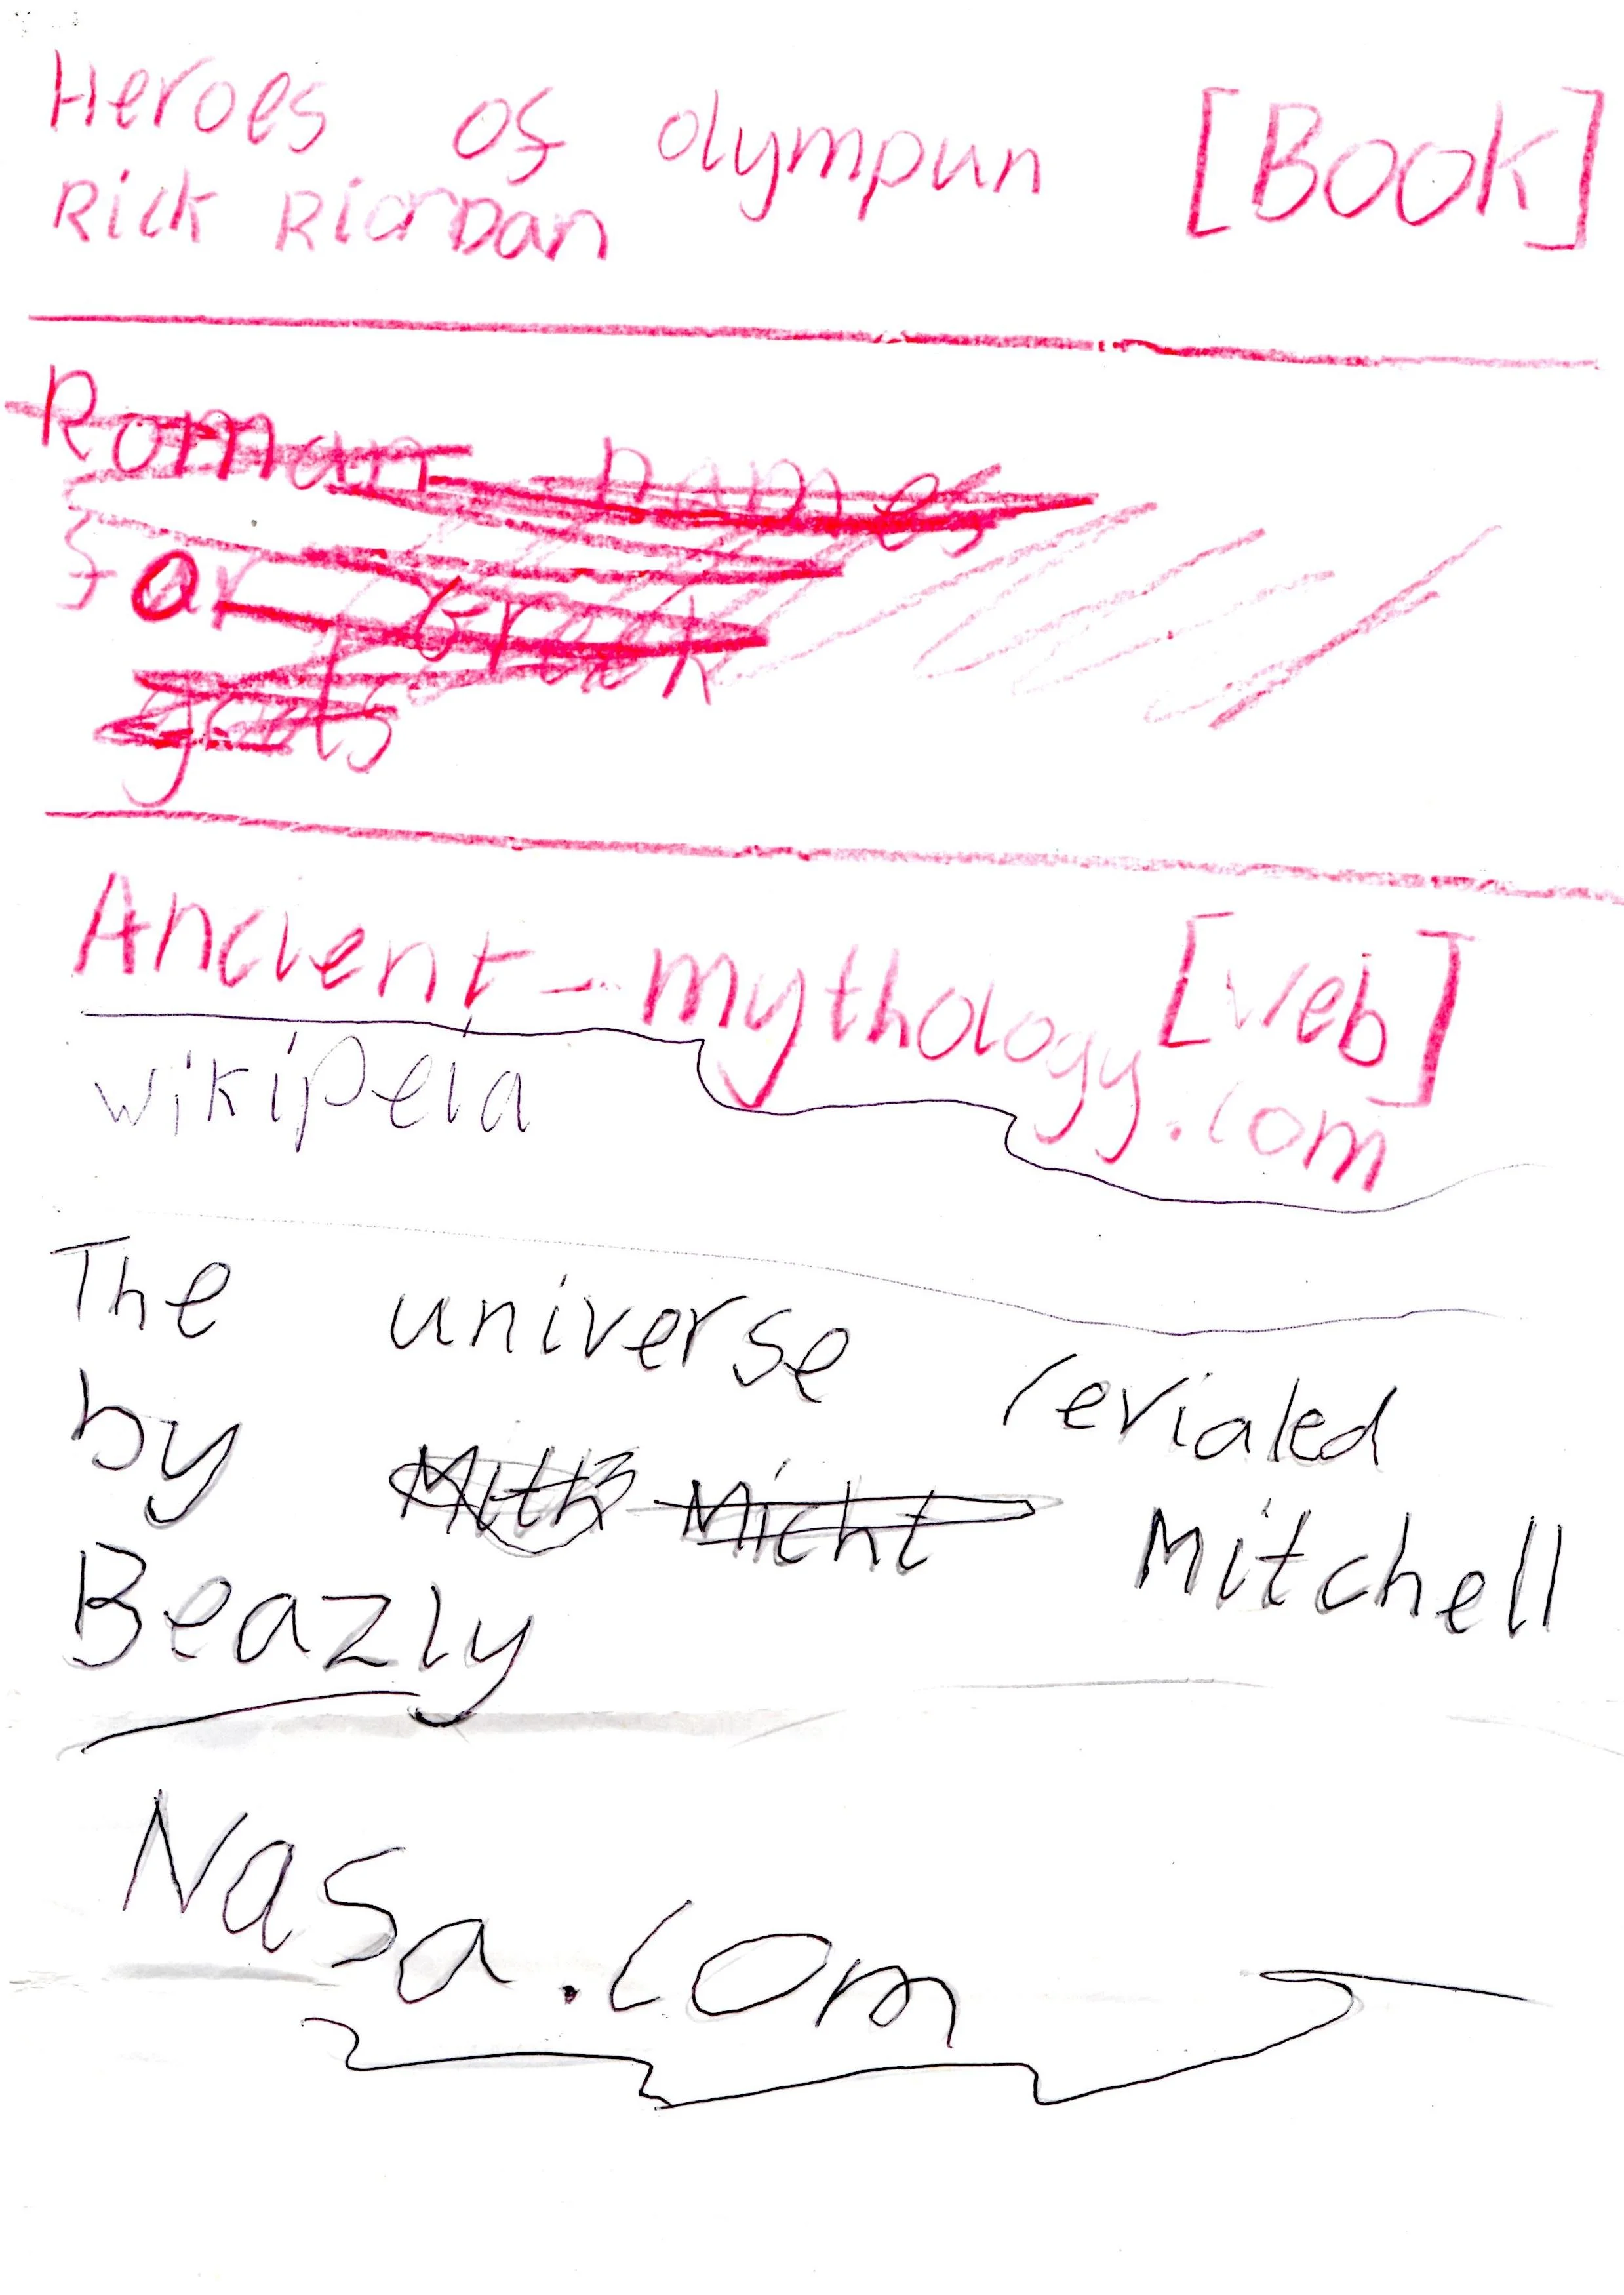 Heroes of olympun [Book]
Rick Riordan
Roman names
for Greek
gods
Ancient-mythology.com [web]
wikipeia
The universe revialed
by Mith Micht Mitchell
Beazly
Nasa.com